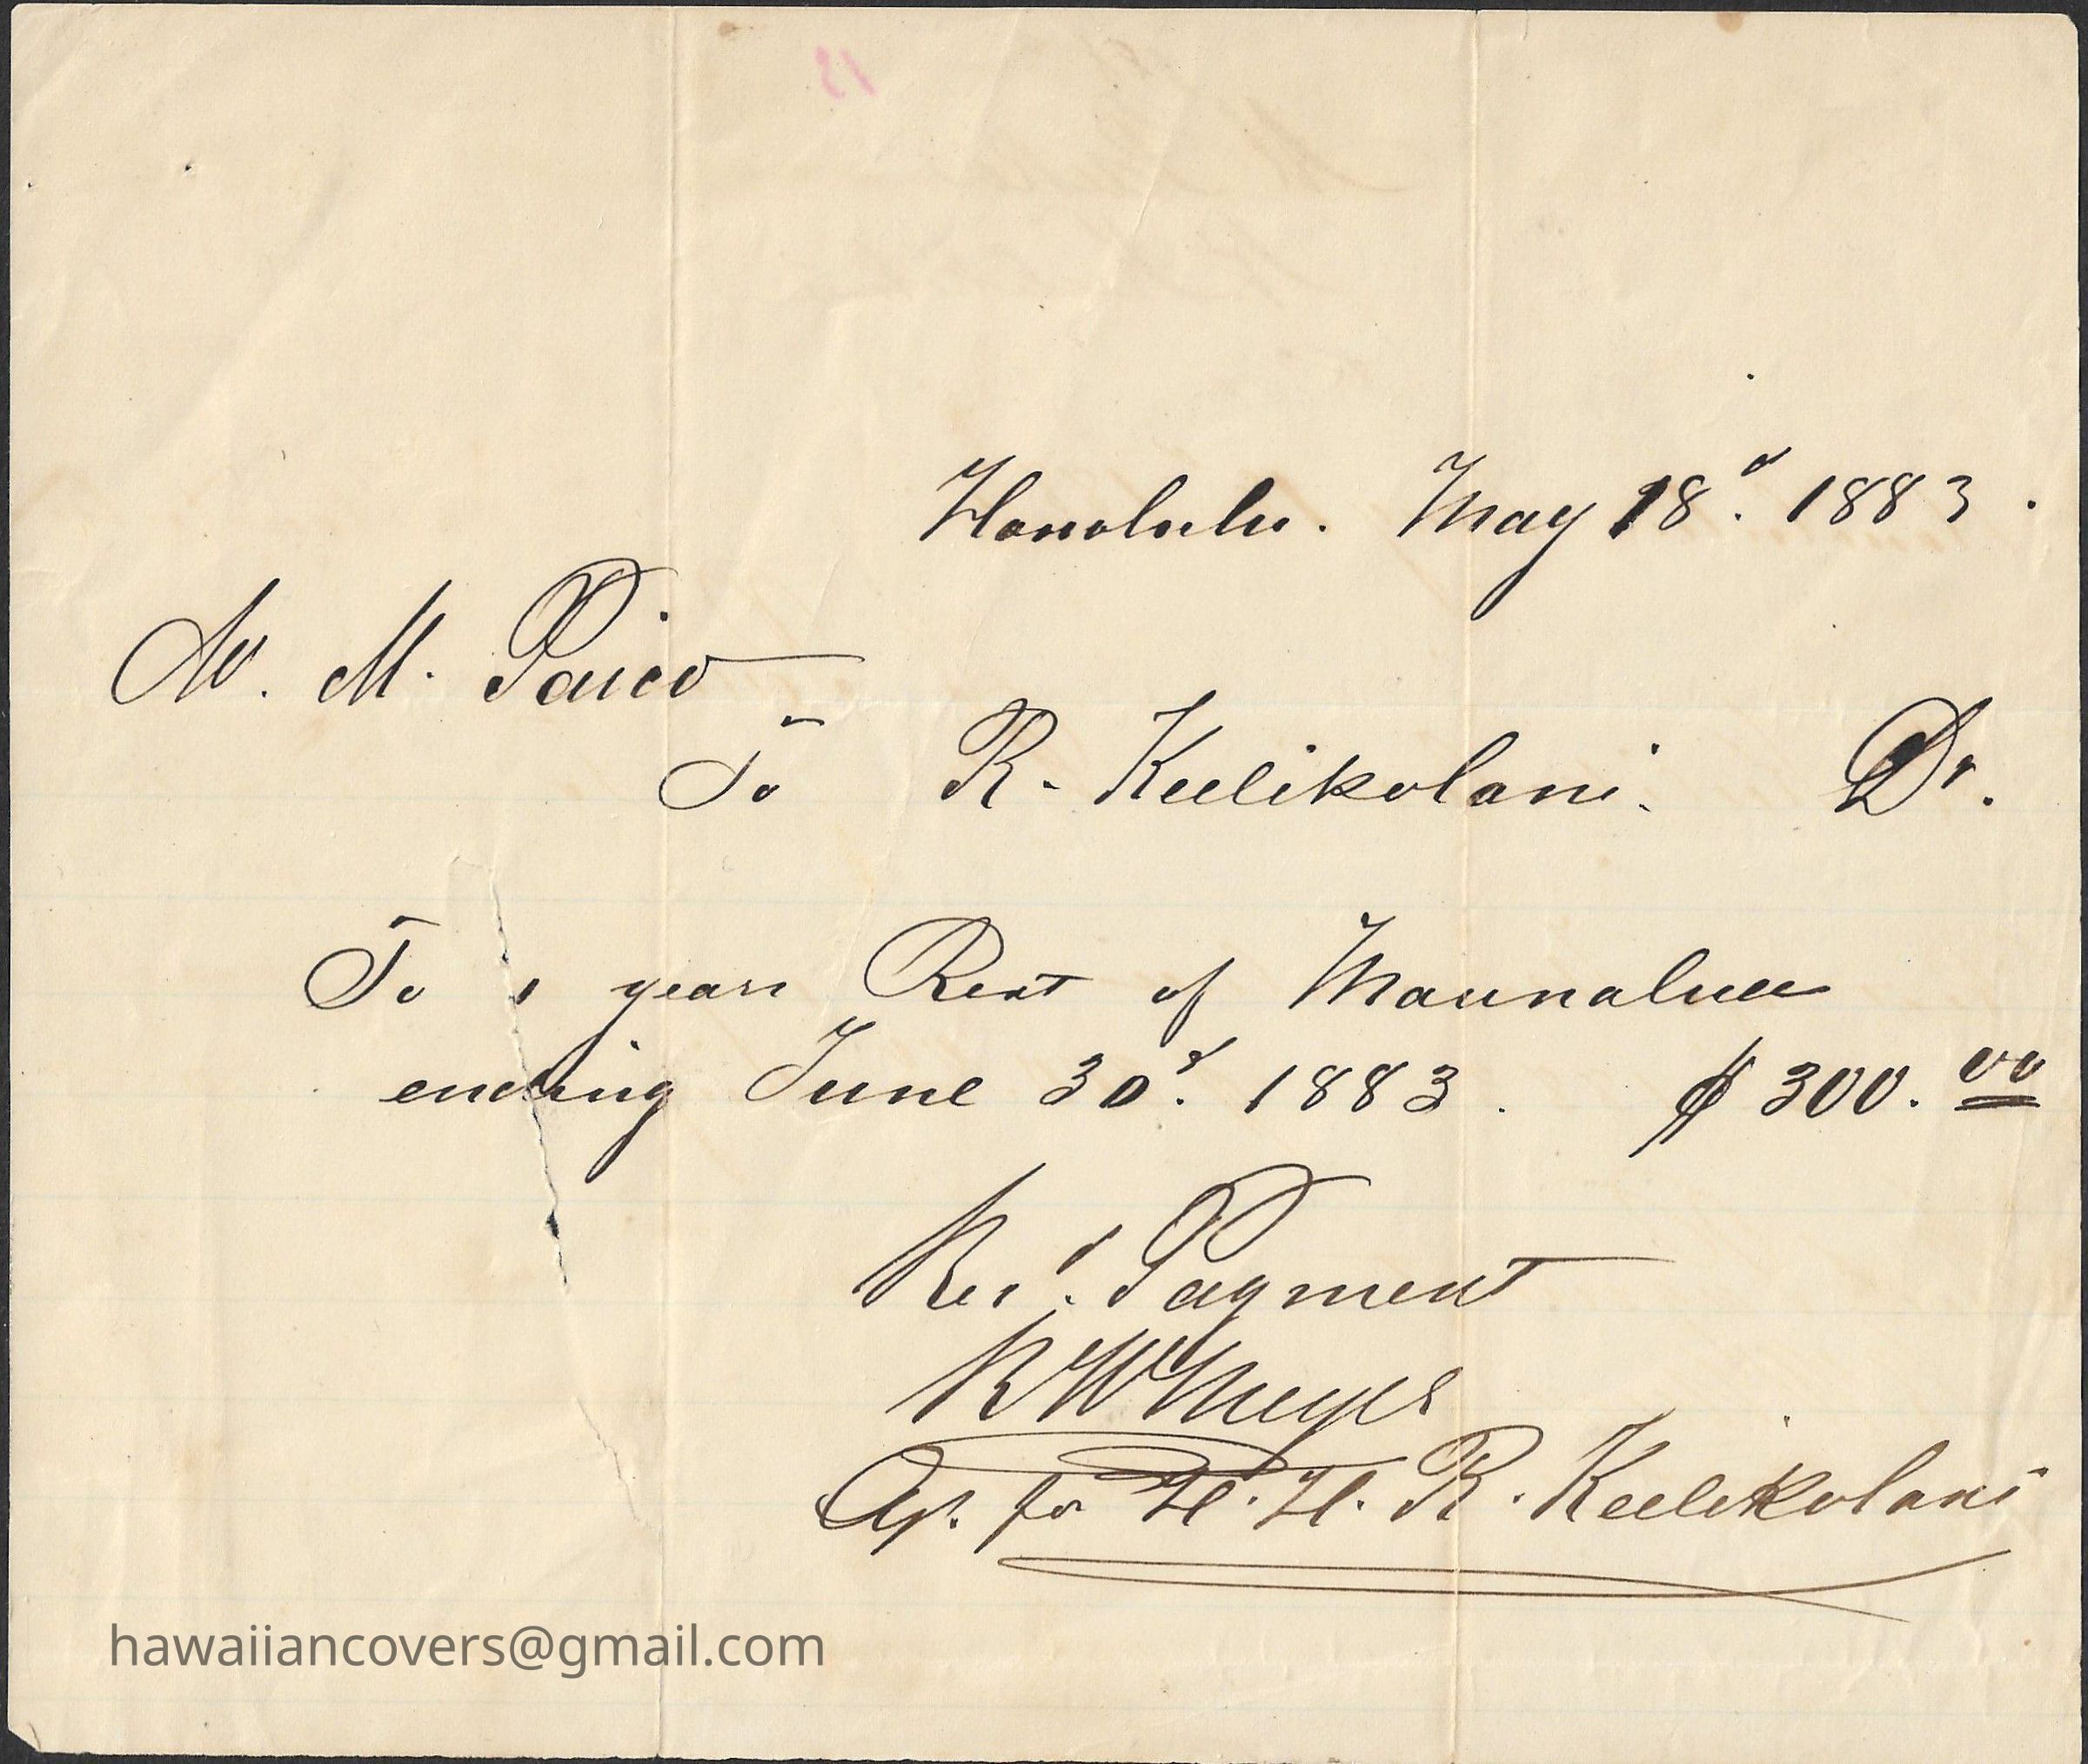 Honolulu. May 18d. 1883.
M. Paico
To R. Keelikolani. Dr.
To 1 years Rent of Maunalua
ending June 30d. 1883. $300.00
Rec'd. Payment
R W Meyer
Agt. for H. H. R. Keelikolani
hawaiiancovers@gmail.com